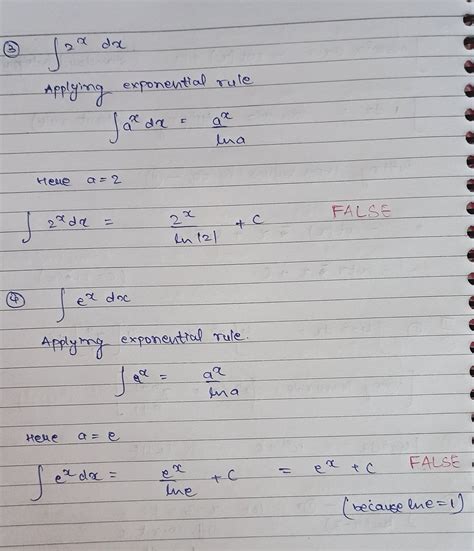 ③ ∫ 2^x dx
Applying exponential rule
∫ a^x dx = a^x / ln a
Here a = 2
∫ 2^x dx = 2^x / ln |2| + C FALSE
④ ∫ e^x dx
Applying exponential rule.
∫ a^x = a^x / ln a
Here a = e
∫ e^x dx = e^x / ln e + C = e^x + C FALSE
(because ln e = 1)